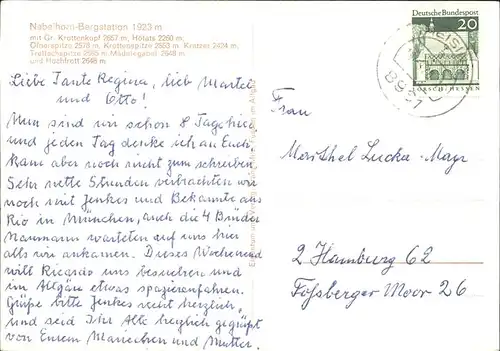 Nebelhorn-Bergstation 1923 m
mit Gr. Krottenkopf 2657 m, Höfats 2260 m,
Öfnerspitze 2578 m, Krottenspitze 2553 m, Kratzer 2424 m,
Trettachspitze 2595 m, Mädelegabel 2645 m
und Hochfrott 2648 m
Liebe Tante Regina, lieb Martel
und Otto!
Nun sind wir schon 8 Tage hier
und jeden Tag denke ich an Euch,
kam aber noch nicht zum schreiben.
Sehr nette Stunden verbrachten wir
noch mit Jenkes und Bekannte aus
Rio in München, auch die 4 Brüder
Naumann warteten auf uns hier
als wir ankamen. Dieses Wochenend
will Ricardo uns besuchen und
im Allgäu etwas spazierenfahren.
Grüße bitte Jenkes recht herzlich,
und seid Ihr Alle herzlich gegrüßt
von Eurem Manechen und Mutter.
Deutsche Bundespost
20
LORSCH/HESSEN
8981
Frau
Marthel Lucka-Mayr
2 Hamburg 62
Foßberger Moor 26